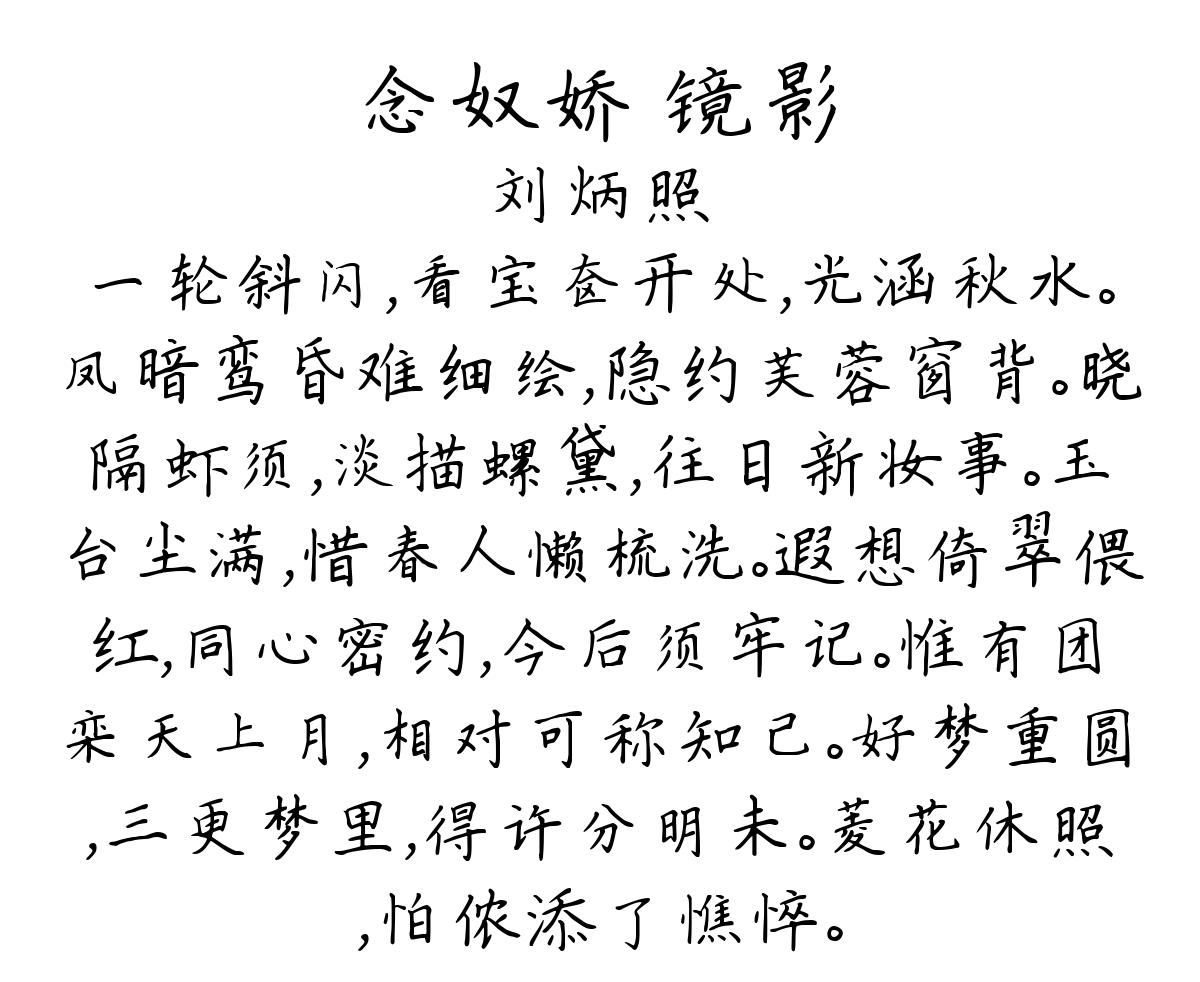 念奴娇 镜影
刘炳照
一轮斜闪,看宝奁开处,光涵秋水。
凤暗鸾昏难细绘,隐约芙蓉窗背。晓
隔虾须,淡描螺黛,往日新妆事。玉
台尘满,惜春人懒梳洗。遐想倚翠偎
红,同心密约,今后须牢记。惟有团
栾天上月,相对可称知己。好梦重圆
,三更梦里,得许分明未。菱花休照
,怕侬添了憔悴。